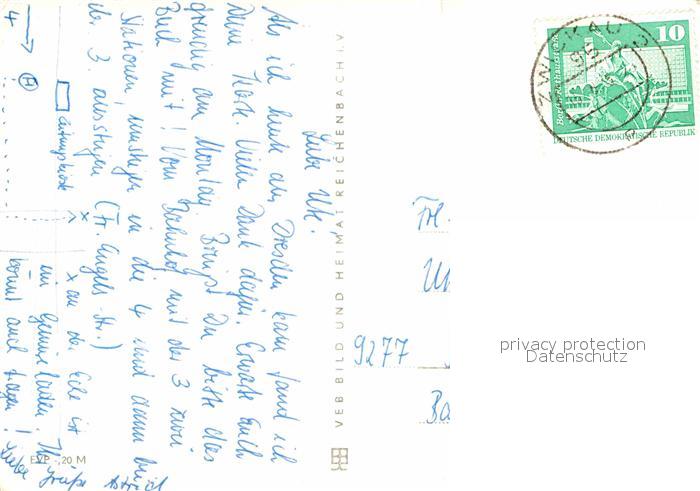 Liebe Ute!
Als ich heute aus Dresden kam fand ich
Deine Karte. Vielen Dank dafür. Erwarte Euch
freudig am Montag. Bringst Du bitte das
Buch mit! Vom Bahnhof mit der 3 zwei
Stationen, umsteigen in die 4 und dann
der 3. aussteigen (Fr. Engels-Str.)
x an der Ecke ist
ein Gemüseladen. Ihr
könnt auch fragen!
Liebe Grüße Astrid
4
H
x
VEB BILD UND HEIMAT REICHENBACH I.V.
EVP -,20 M
Frl.
9277
10
DEUTSCHE DEMOKRATISCHE REPUBLIK
ZWICKAU
privacy protection
Datenschutz